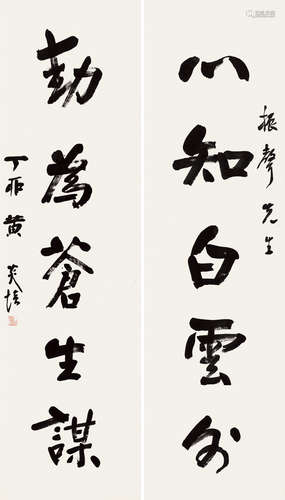 振聲先生
心知白雲外
勤為蒼生謀
丁丣黄炎培